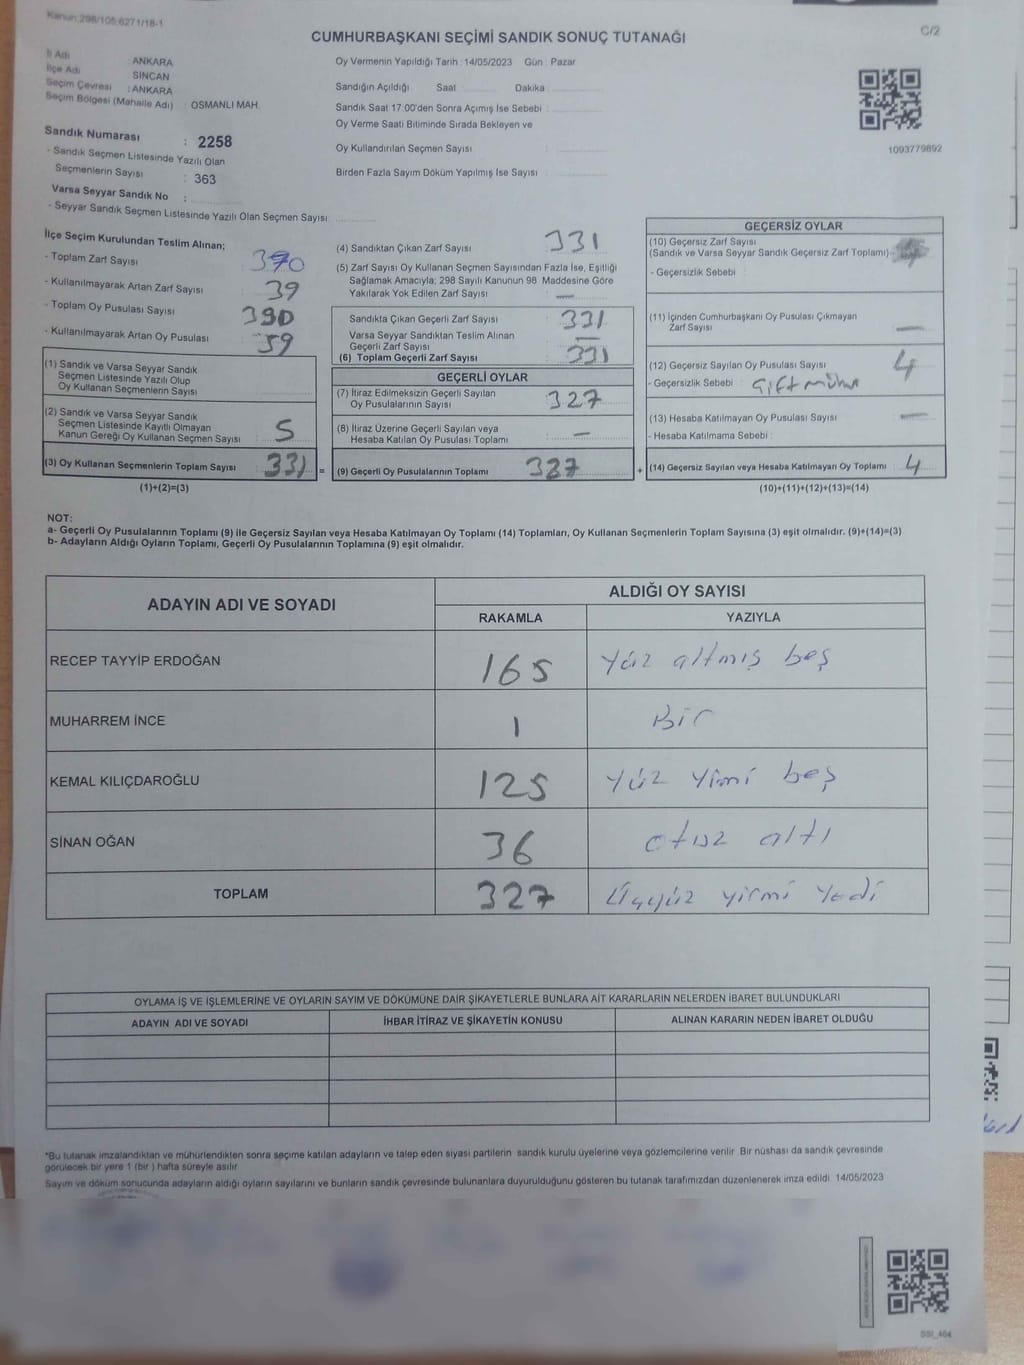 Kanun:298/105,6271/18-1
C/2
CUMHURBAŞKANI SEÇİMİ SANDIK SONUÇ TUTANAĞI
İl Adı : ANKARA
İlçe Adı : SİNCAN
Seçim Çevresi : ANKARA
Seçim Bölgesi (Mahalle Adı) : OSMANLI MAH.
Sandık Numarası : 2258
- Sandık Seçmen Listesinde Yazılı Olan
Seçmenlerin Sayısı : 363
Varsa Seyyar Sandık No :
- Seyyar Sandık Seçmen Listesinde Yazılı Olan Seçmen Sayısı:
Oy Vermenin Yapıldığı Tarih : 14/05/2023 Gün : Pazar
Sandığın Açıldığı Saat Dakika
Sandık Saat 17:00'den Sonra Açımış İse Sebebi :
Oy Verme Saati Bitiminde Sırada Bekleyen ve
Oy Kullandırılan Seçmen Sayısı :
Birden Fazla Sayım Döküm Yapılmış İse Sayısı :
1093779892
İlçe Seçim Kurulundan Teslim Alınan;
- Toplam Zarf Sayısı 370
- Kullanılmayarak Artan Zarf Sayısı 39
- Toplam Oy Pusulası Sayısı 390
- Kullanılmayarak Artan Oy Pusulası 59
(1) Sandık ve Varsa Seyyar Sandık
Seçmen Listesinde Yazılı Olup
Oy Kullanan Seçmenlerin Sayısı :
(2) Sandık ve Varsa Seyyar Sandık
Seçmen Listesinde Kayıtlı Olmayan
Kanun Gereği Oy Kullanan Seçmen Sayısı : 5
(3) Oy Kullanan Seçmenlerin Toplam Sayısı 331 =
(1)+(2)=(3)
(4) Sandıktan Çıkan Zarf Sayısı 331
(5) Zarf Sayısı Oy Kullanan Seçmen Sayısından Fazla İse, Eşitliği
Sağlamak Amacıyla; 298 Sayılı Kanunun 98 Maddesine Göre
Yakılarak Yok Edilen Zarf Sayısı : —
Sandıkta Çıkan Geçerli Zarf Sayısı 331
Varsa Seyyar Sandıktan Teslim Alınan
Geçerli Zarf Sayısı : —
(6) Toplam Geçerli Zarf Sayısı 331
GEÇERLİ OYLAR
(7) İtiraz Edilmeksizin Geçerli Sayılan
Oy Pusulalarının Sayısı 327
(8) İtiraz Üzerine Geçerli Sayılan veya
Hesaba Katılan Oy Pusulası Toplamı : —
(9) Geçerli Oy Pusulalarının Toplamı 327 +
GEÇERSİZ OYLAR
(10) Geçersiz Zarf Sayısı
(Sandık ve Varsa Seyyar Sandık Geçersiz Zarf Toplamı)
- Geçersizlik Sebebi :
(11) İçinden Cumhurbaşkanı Oy Pusulası Çıkmayan
Zarf Sayısı —
(12) Geçersiz Sayılan Oy Pusulası Sayısı 4
- Geçersizlik Sebebi : Çift mühür
(13) Hesaba Katılmayan Oy Pusulası Sayısı —
- Hesaba Katılmama Sebebi :
(14) Geçersiz Sayılan veya Hesaba Katılmayan Oy Toplamı : 4
(10)+(11)+(12)+(13)=(14)
NOT:
a- Geçerli Oy Pusulalarının Toplamı (9) ile Geçersiz Sayılan veya Hesaba Katılmayan Oy Toplamı (14) Toplamları, Oy Kullanan Seçmenlerin Toplam Sayısına (3) eşit olmalıdır. (9)+(14)=(3)
b- Adayların Aldığı Oyların Toplamı, Geçerli Oy Pusulalarının Toplamına (9) eşit olmalıdır.
ADAYIN ADI VE SOYADI ALDIĞI OY SAYISI
RAKAMLA YAZIYLA
RECEP TAYYİP ERDOĞAN 165 Yüz altmış beş
MUHARREM İNCE 1 Bir
KEMAL KILIÇDAROĞLU 125 Yüz Yimi beş
SİNAN OĞAN 36 otuz altı
TOPLAM 327 Üçyüz yirmi Yedi
OYLAMA İŞ VE İŞLEMLERİNE VE OYLARIN SAYIM VE DÖKÜMÜNE DAİR ŞİKAYETLERLE BUNLARA AİT KARARLARIN NELERDEN İBARET BULUNDUKLARI
ADAYIN ADI VE SOYADI İHBAR İTİRAZ VE ŞİKAYETİN KONUSU ALINAN KARARIN NEDEN İBARET OLDUĞU
*Bu tutanak imzalandıktan ve mühürlendikten sonra seçime katılan adayların ve talep eden siyasi partilerin sandık kurulu üyelerine veya gözlemcilerine verilir. Bir nüshası da sandık çevresinde
görülecek bir yere 1 (bir ) hafta süreyle asılır.
Sayım ve döküm sonucunda adayların aldığı oyların sayılarını ve bunların sandık çevresinde bulunanlara duyurulduğunu gösteren bu tutanak tarafımızdan düzenlenerek imza edildi. 14/05/2023
SSI_404